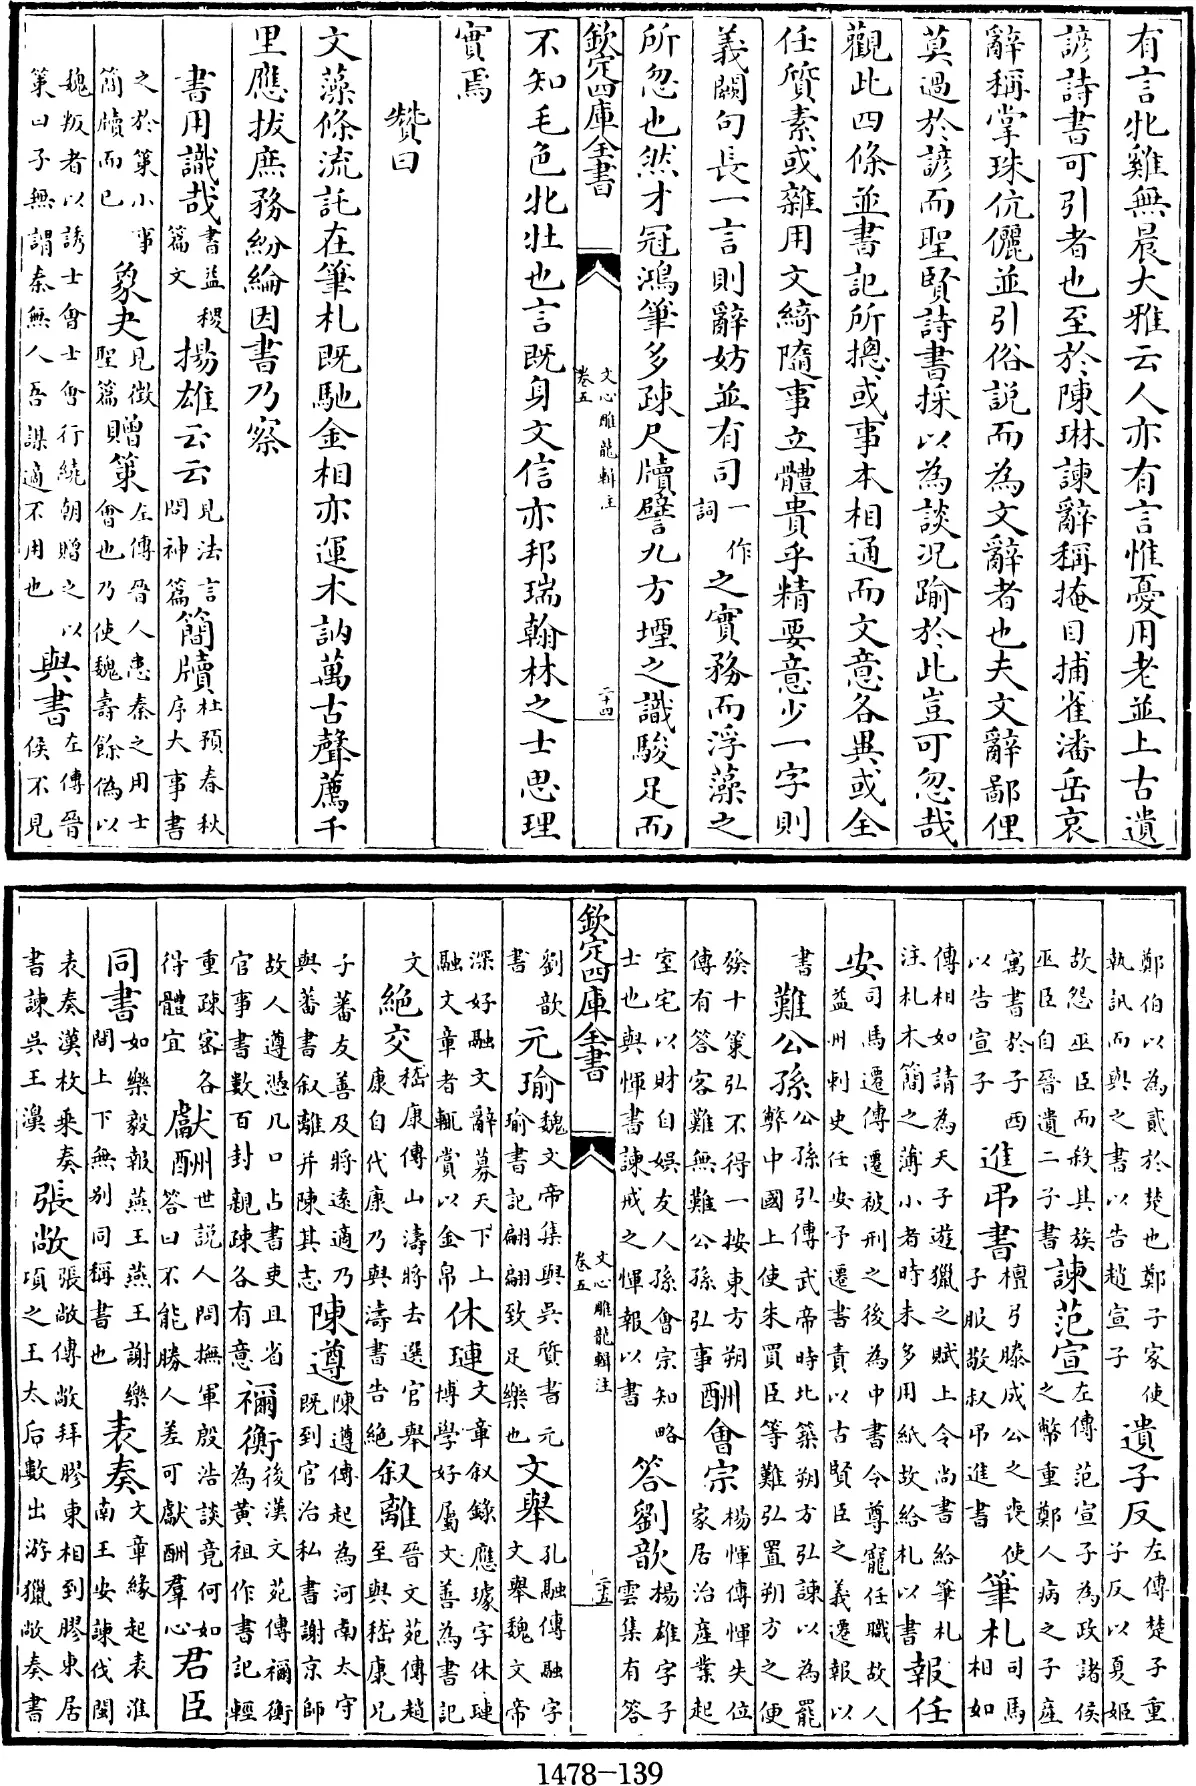 有言牝雞無晨大雅云人亦有言惟憂用老並上古遺
諺詩書可引者也至於陳琳諫辭稱掩目捕雀潘岳哀
辭稱掌珠伉儷並引俗說而為文辭者也夫文辭鄙俚
莫過於諺而聖賢詩書採以為談況踰於此豈可忽哉
觀此四條並書記所摠或事本相通而文意各異或全
任質素或雜用文綺隨事立體貴乎精要意少一字則
義闕句長一言則辭妨並有司一作詞之實務而浮藻之
所忽也然才冠鴻筆多疎尺牘譬九方堙之識駿足而
欽定四庫全書 文心雕龍輯註 卷五 二十四
不知毛色牝牡也言既身文信亦邦瑞翰林之士思理
實焉
贊曰
文藻條流託在筆札既馳金相亦運木訥萬古聲薦千
里應拔庶務紛綸因書乃察
書用識哉書益稷篇文揚雄云云見法言問神篇簡牘杜預春秋序大事書
之於策小事簡牘而已象夬見徵聖篇贈策左傳晉人患秦之用士會也乃使魏壽餘偽以
魏叛者以誘士會士會行繞朝贈之以策曰子無謂秦無人吾謀適不用也與書左傳晉侯不見
鄭伯以為貳於楚也鄭子家使執訊而與之書以告趙宣子遺子反左傳楚子重子反以夏姬
故怨巫臣而殺其族巫臣自晉遺二子書諫范宣左傳范宣子為政諸侯之幣重鄭人病之子產
寓書於子西以告宣子進弔書檀弓滕成公之喪使子服敬叔弔進書筆札司馬相如
傳相如請為天子遊獵之賦上令尚書給筆札注札木簡之薄小者時未多用紙故給札以書報任
安司馬遷傳遷被刑之後為中書令尊寵任職故人益州刺史任安予遷書責以古賢臣之義遷報以
書難公孫公孫弘傳武帝時北築朔方弘諫以為罷弊中國上使朱買臣等難弘置朔方之便
發十策弘不得一按東方朔傳有答客難無難公孫弘事酬會宗楊惲傳惲失位家居治產業起
室宅以財自娛友人孫會宗知略士也與惲書諫戒之惲報以書答劉歆揚雄字子雲集有答
欽定四庫全書 文心雕龍輯註 卷五 二十五
劉歆書元瑜魏文帝集與吳質書元瑜書記翩翩致足樂也文舉孔融傳融字文舉魏文帝
深好融文辭募天下上融文章者輒賞以金帛休璉文章叙錄應璩字休璉博學好屬文善為書記
文絕交嵇康傳山濤將去選官舉康自代康乃與濤書告絕叙離晉文苑傳趙至與嵇康兄
子蕃友善及將遠適乃與蕃書叙離并陳其志陳遵陳遵傳起為河南太守既到官治私書謝京師
故人遵憑几口占書吏且省官事書數百封親疎各有意禰衡後漢文苑傳禰衡為黃祖作書記輕
重疎密各得體宜獻酬世說人問撫軍殷浩談竟何如答曰不能勝人差可獻酬羣心君臣
同書如樂毅報燕王燕王謝樂間上下無別同稱書也表奏文章緣起表淮南王安諫伐閩
表奏漢枚乘奏書諫吳王濞張敞張敞傳敞拜膠東相到膠東居頃之王太后數出游獵敞奏書
1478—139